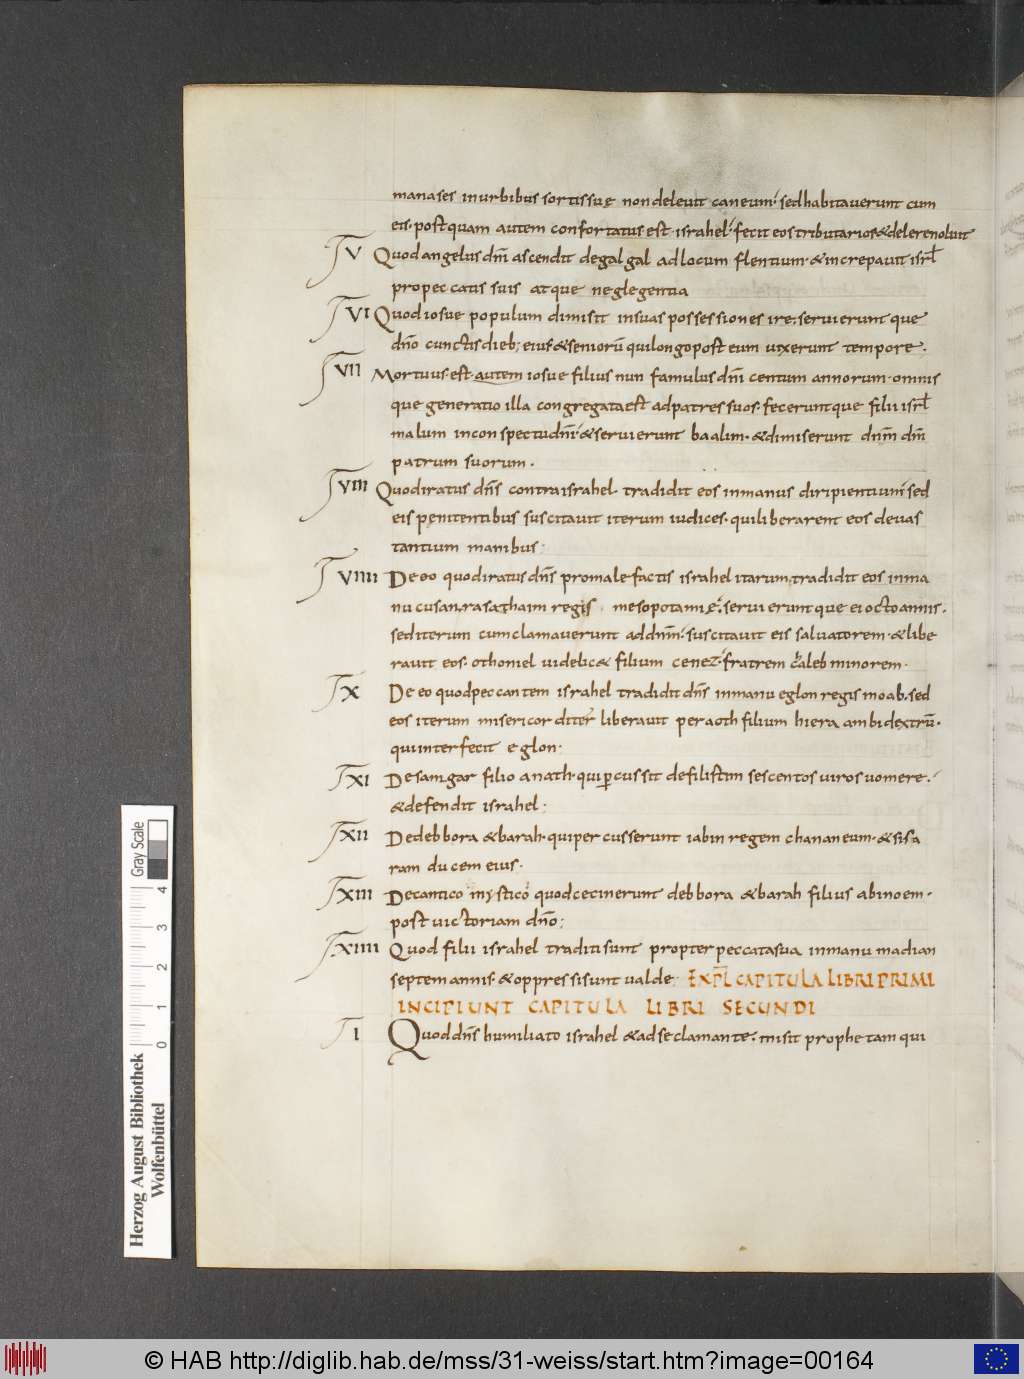 manases inurbibus sortissuę nondeleuit caneum· sedhabitauerunt cum
eis· postquam autem confortatus est israhel· fecit eostributarios&delerenoluit
V Quodangelus dni ascendit degalgal adlocum flentium· &increpauit isrl
propeccatis suis atque neglegentia
VI Quodiosue populum dimisit insuas possessiones ire· seruieruntque
dno cunctisdieb; eius &seniorū quilongopost eum uixerunt tempore·
VII Mortuus· est· autem iosue filius nun famulus dni centum annorum· omnis
que generatio illa congregataest adpatres suos· feceruntque filii isrl
malum inconspectudni· &seruierunt baalim· &dimiserunt dnm dm
patrum suorum·
VIII Quodiratus dns contraisrahel· tradidit eos inmanus diripientium· sed
eis penitentibus suscitauit iterum iudices· quiliberarent eos deuas
tantium manibus·
VIIII De eo quodiratus dns promale·factis israhelitarum· tradidit eos inma
nu cusan·rasathaim regis mesopotamię· seruieruntque ei octoannis·
sediterum cumclamauerunt addnm· suscitauit eis saluatorem· &libe
rauit eos· othoniel uidelic& filium cenez· fratrem chaleb minorem·
X De eo quodpeccantem israhel tradidit dns inmanu eglon regis moab· sed
eos iterum misericorditer liberauit peraoth filium hiera ambidextrū·
quiinterfecit eglon·
XI Desamgar filio anath· quipercussit defilistim sescentos uiros uomere·
&defendit israhel;
XII Dedebbora &barah· quipercusserunt iabin regem chananeum· &sisa
ram ducem eius·
XIII Decantico mystico quodcecinerunt debbora &barah filius abinoem·
post uictoriam dno;
XIIII Quod filii israhel traditisunt propterpeccatasua inmanu madian
septem annis· &oppressisunt ualde· EXPL CAPITULA LIBRI PRIMI
INCIPIUNT CAPITULA LIBRI SECUNDI
I Quoddns humiliato israhel &adseclamante· misit prophetam qui
Gray Scale
0 1 2 3 4
Herzog August Bibliothek
Wolfenbüttel
© HAB http://diglib.hab.de/mss/31-weiss/start.htm?image=00164